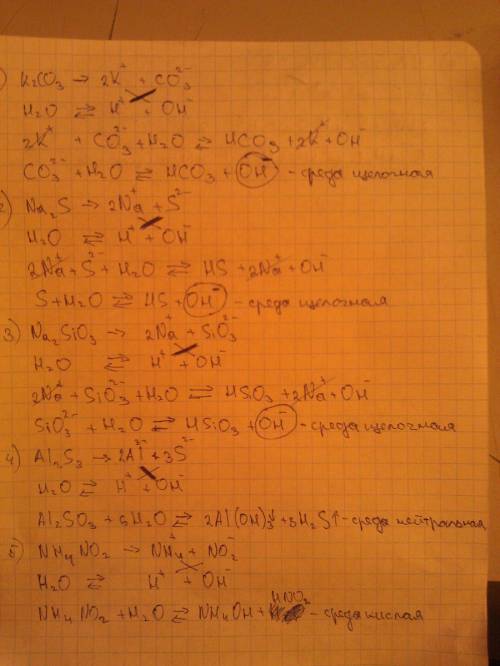 ) K2CO3 → 2K⁺ + CO3²⁻
H2O ⇄ H⁺ + OH⁻
2K⁺ + CO3²⁻ + H2O ⇄ HCO3 + 2K⁺ + OH⁻
CO3²⁻ + H2O ⇄ HCO3 + OH⁻ - среда щелочная
2) Na2S → 2Na⁺ + S²⁻
H2O ⇄ H⁺ + OH⁻
2Na⁺ + S²⁻ + H2O ⇄ HS + 2Na⁺ + OH⁻
S + H2O ⇄ HS + OH⁻ - среда щелочная
3) Na2SiO3 → 2Na⁺ + SiO3²⁻
H2O ⇄ H⁺ + OH⁻
2Na⁺ + SiO3²⁻ + H2O ⇄ HSiO3 + 2Na⁺ + OH⁻
SiO3²⁻ + H2O ⇄ HSiO3 + OH⁻ - среда щелочная
4) Al2S3 → 2Al³⁺ + 3S²⁻
H2O ⇄ H⁺ + OH⁻
Al2SO3 + 6H2O ⇄ 2Al(OH)3↓ + 3H2S↑ - среда нейтральная
5) NH4NO2 → NH4⁺ + NO2⁻
H2O ⇄ H⁺ + OH⁻
NH4NO2 + H2O ⇄ NH4OH + HNO2 - среда кислая